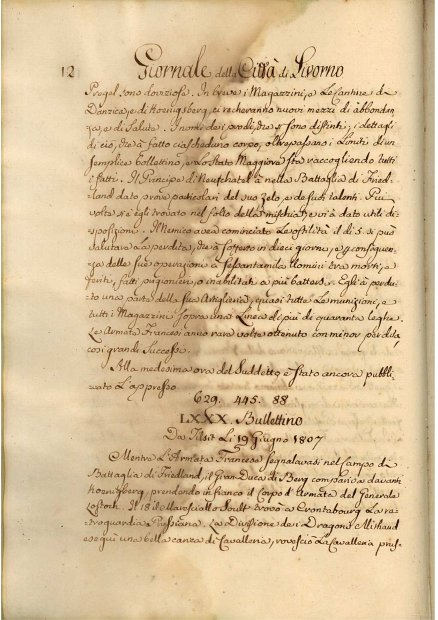 12 Giornale della Città di Livorno
Pregel sono doviziose. In breve i Magazzini, e Le Cantine di
Danzica, e di Koenigsberg, ci recheranno nuovi mezzi di abbondan
za, e di Salute. I nomi dei prodi, che si sono distinti, i dettagli
di ciò, che à fatto ciascheduno corpo, oltrepassano i Limiti di un
semplice bollettino, e Lo Stato Maggiore sta raccogliendo tutti
i fatti. Il Principe di Neufchatel à nella Battaglia di Fried-
land dato prove particolari del suo zelo, e de suoi talenti. Più
volte si è egli trovato nel folto della mischia, e vi à dato utili di-
sposizioni. Il Nemico avea cominciato Le ostilità il dì 5. si può
valutare La perdita, che à sofferto in dieci giorni, e in conseguen
za delle sue operazioni a sessantamila Uomini tra morti, e
feriti, fatti prigionieri, o inabilitati a più battersi. Egli à perdu-
to una parte della sua Artiglieria, quasi tutte Le munizioni, e
tutti i Magazzini sopra una Linea di più di quaranta leghe.
Le Armate Francesi anno rare volte ottenuto con minor perdita,
così grandi Successi.
Alla medesima ora del Suddetto è stato ancora pubbli
cato L'appresso
629. 445. 88
LXXX. Bullettino
Da Tilsit Li 19 Giugno 1807
Mentre L'Armata Francese segnalavasi nel campo di
Battaglia di Friedland, il Gran Duca di Berg comparso davanti
Koenigsberg, prendendo in fianco il Corpo d'Armata del Generale
Lestoch. Il 18 il Maresciallo Soult trovò a Crentzbourg La re-
troguardia Prussiana. La Divisione dei Dragoni Milhaud
eseguì una bella carica di Cavalleria, rovesciò La Cavalleria prus-